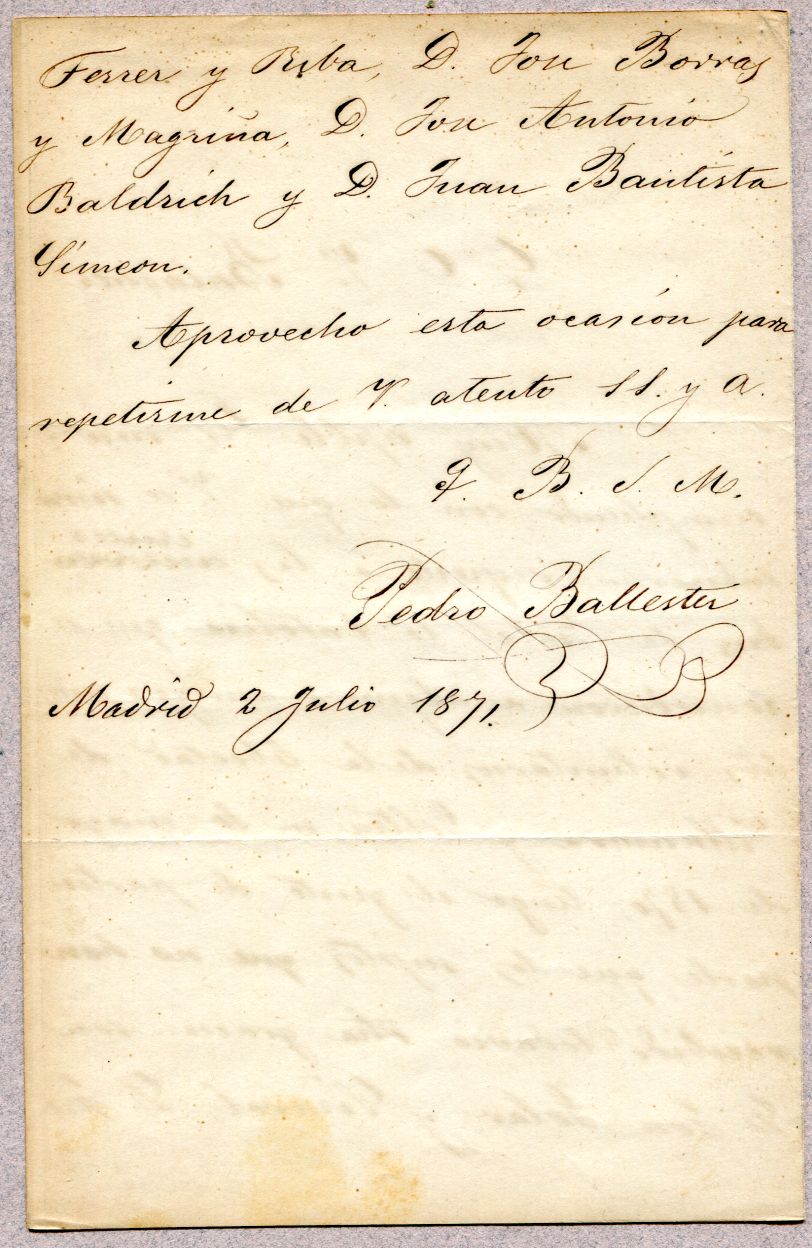 Ferrer y Riba, D. Jose Borras
y Magriña, D. Jose Antonio
Baldrich y D. Juan Bautista
Simeon.
Aprovecho esta ocasion para
repetirme de V. atento S S. y A.
q. B. S. M.
Pedro Ballester
Madrid 2 Julio 1871.